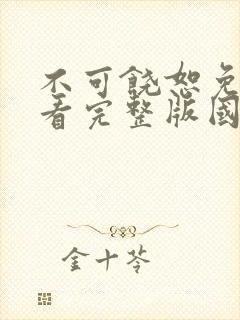 不可饶恕免
看完整版国
金十苓